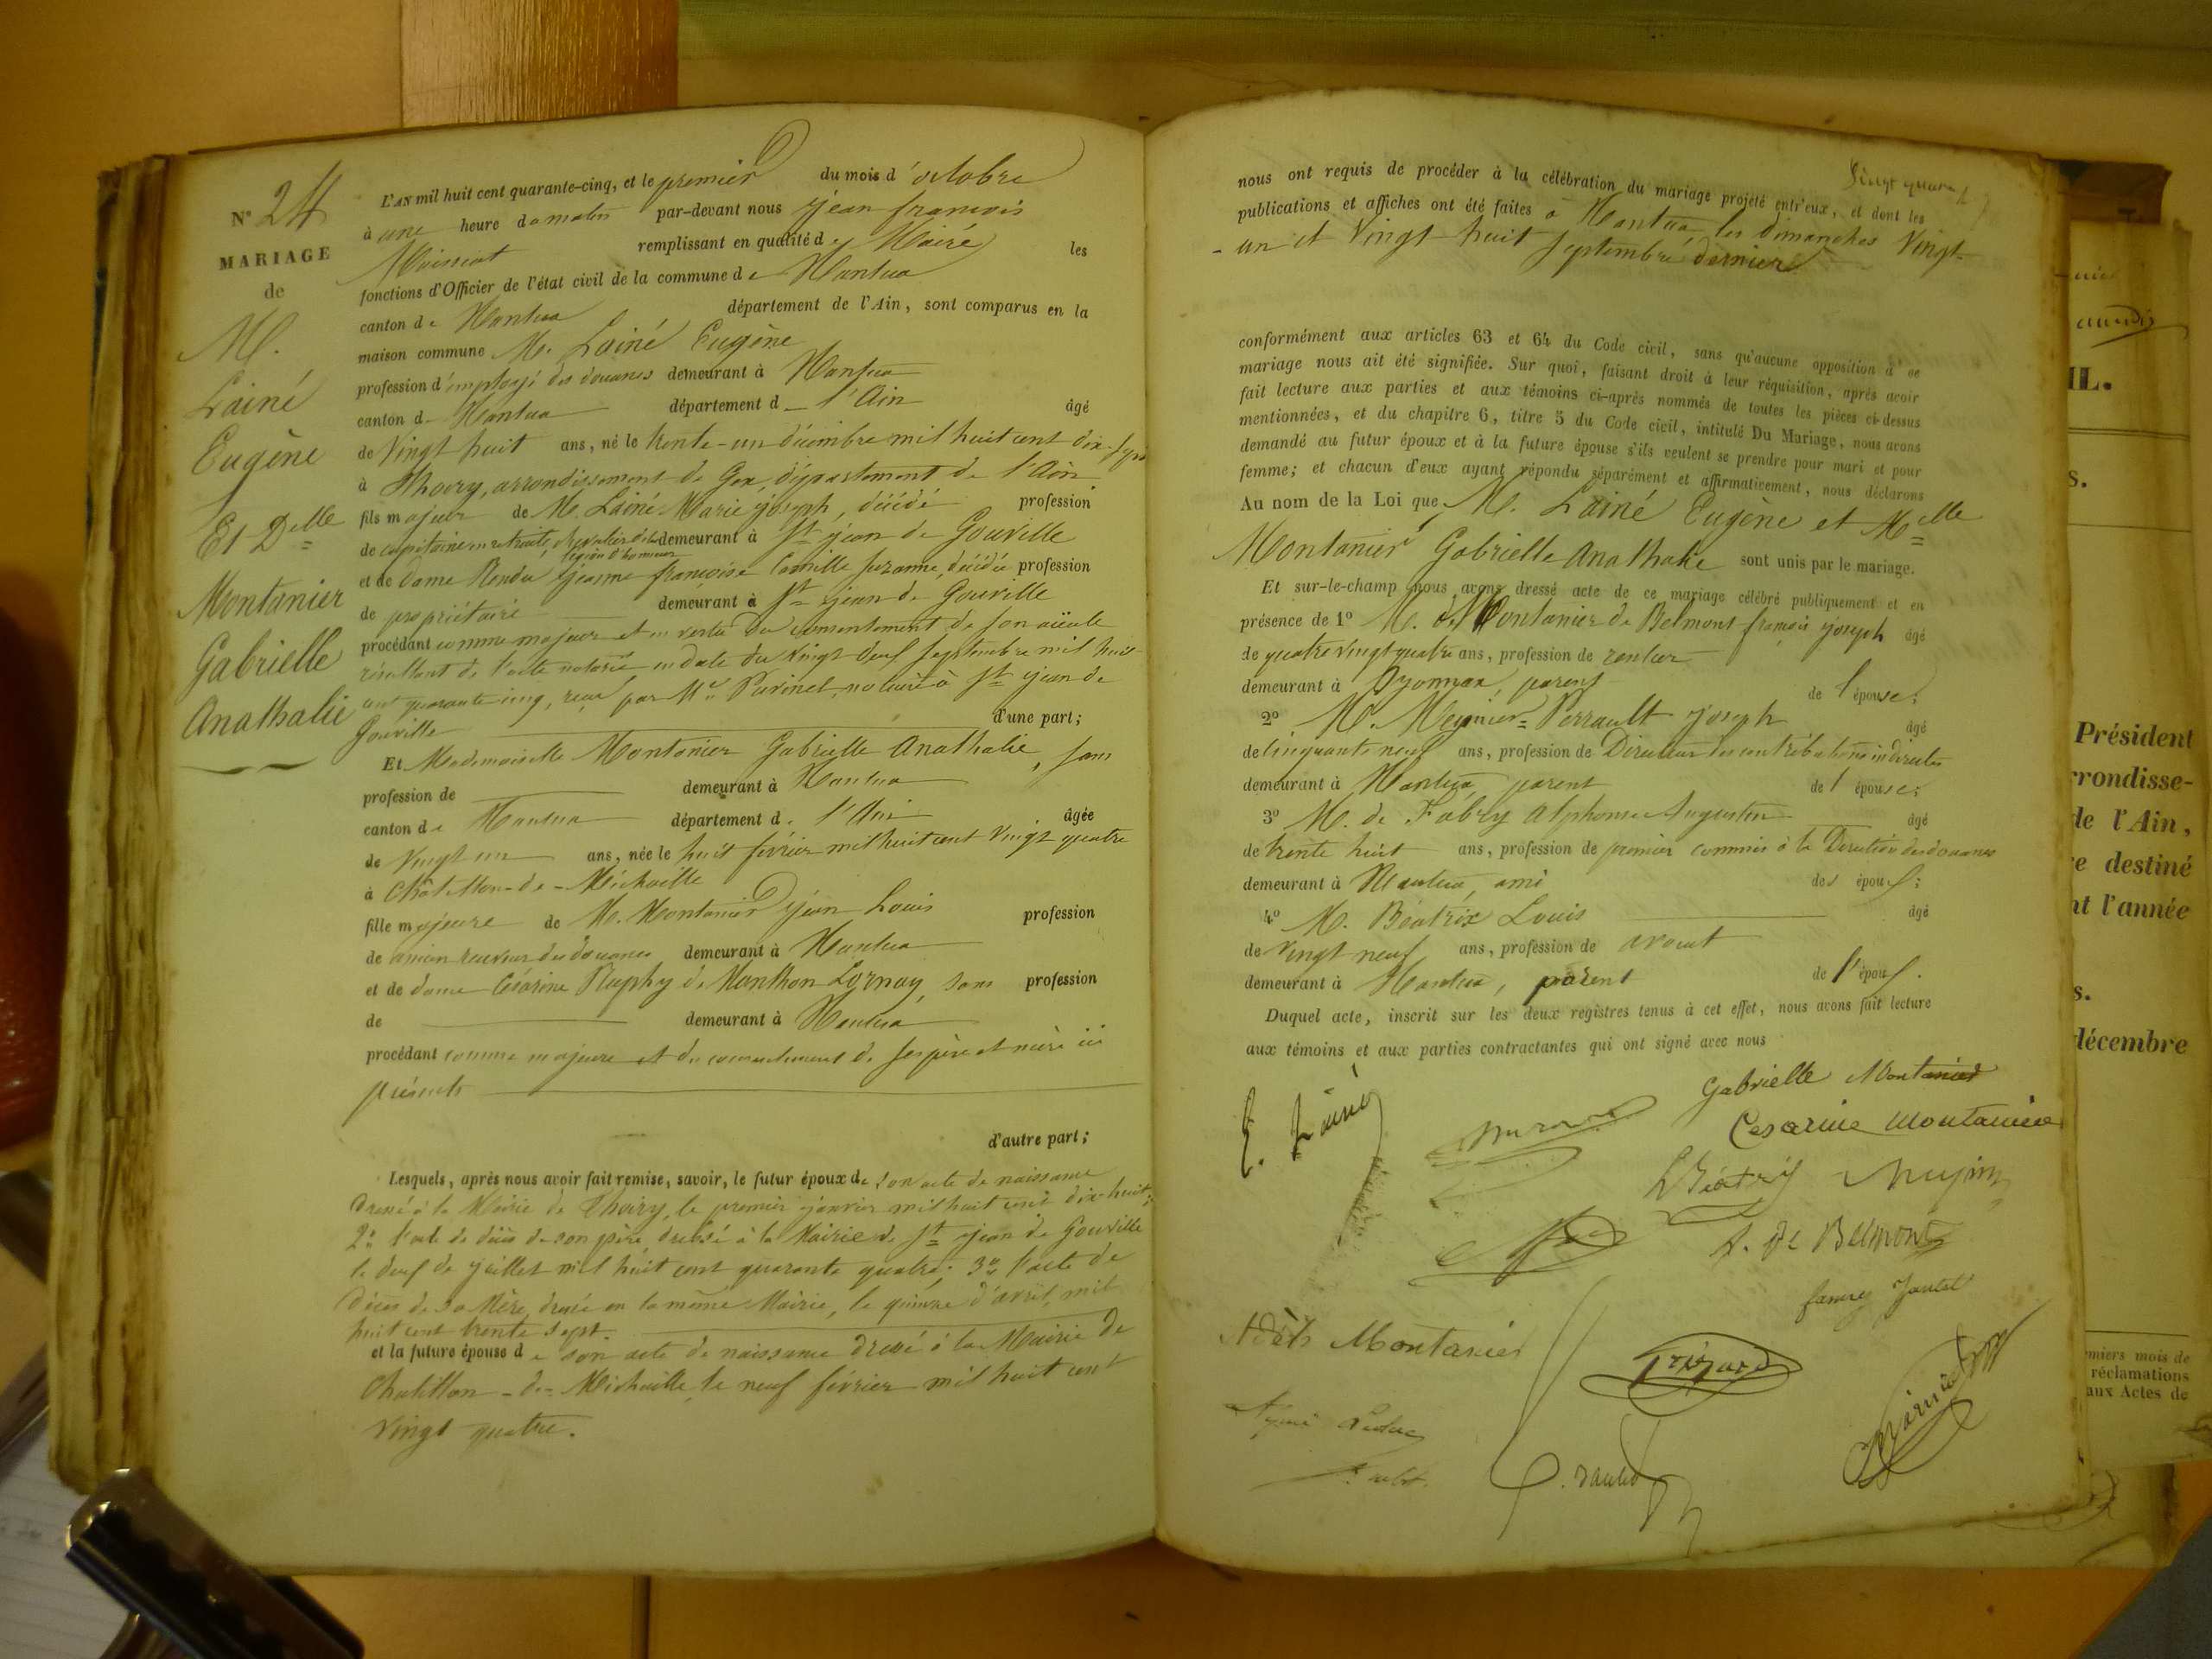 N° 24
MARIAGE
de
M.
Lainé
Eugène
Et Delle
Montanier
Gabrielle
Anathalie
L'AN mil huit cent quarante-cinq, et le premier du mois d'octobre
à une heure du matin par-devant nous jean françois
Moissiat remplissant en qualité de Maire les
fonctions d'Officier de l'état civil de la commune de Nantua
canton de Nantua département de l'Ain, sont comparus en la
maison commune M. Lainé Eugène
profession d'employé des douanes demeurant à Nantua
canton de Nantua département d l'Ain âgé
de Vingt huit ans, né le trente-un décembre mil huit cent dix-sept
à Thoiry, arrondissement de Gex, département de l'Ain
fils majeur de M. Lainé Marie joseph, décédé profession
de capitaine en retraite, chevalier de la légion d'honneur demeurant à St jean de Gouville
et de dame Rendu jeanne françoise Camille suzanne, décédée profession
de propriétaire demeurant à St jean de Gouville
procédant comme majeur et en vertu du consentement de son aïeule
résultant de l'acte notarié en date du vingt neuf septembre mil huit
cent quarante cinq, reçu par Me notaire à St jean de
Gouville d'une part;
Et Mademoiselle Montanier Gabrielle Anathalie, sans
profession de demeurant à Nantua
canton de Nantua département de l'Ain âgée
de Vingt un ans, née le huit février mil huit cent vingt quatre
à Châtillon-de-Michaille
fille majeure de M. Montanier jean Louis profession
de ancien receveur des douanes demeurant à Nantua
et de dame Césarine Ruphy de Manthon Lornay, sans profession
de demeurant à Nantua
procédant comme majeure et du consentement de ses père et mère ici
présents
d'autre part;
Lesquels, après nous avoir fait remise, savoir, le futur époux de son acte de naissance
dressé à la Mairie de Thoiry, le premier janvier mil huit cent dix-huit;
2° l'acte de décès de son père, dressé à la Mairie de St jean de Gouville
le neuf de juillet mil huit cent quarante quatre; 3° l'acte de
décès de sa Mère, dressé en la même Mairie, le quinze d'avril mil
huit cent trente sept.
et la future épouse de son acte de naissance dressé à la Mairie de
Chatillon-de-Michaille, le neuf février mil huit cent
vingt quatre.
nous ont requis de procéder à la célébration du mariage projeté entr'eux, et dont les
publications et affiches ont été faites à Nantua, les dimanches Vingt-
-un et Vingt-huit septembre dernier
conformément aux articles 63 et 64 du Code civil, sans qu'aucune opposition à ce
mariage nous ait été signifiée. Sur quoi, faisant droit à leur réquisition, après avoir
fait lecture aux parties et aux témoins ci-après nommés de toutes les pièces ci-dessus
mentionnées, et du chapitre 6, titre 5 du Code civil, intitulé Du Mariage, nous avons
demandé au futur époux et à la future épouse s'ils veulent se prendre pour mari et pour
femme; et chacun d'eux ayant répondu séparément et affirmativement, nous déclarons
Au nom de la Loi que M. Lainé Eugène et Melle
Montanier Gabrielle Anathalie sont unis par le mariage.
Et sur-le-champ nous avons dressé acte de ce mariage célébré publiquement et en
présence de 1° M. de Montanier de Belmont françois joseph âgé
de quatre vingt quatre ans, profession de rentier
demeurant à Oyonnax, parent de l'épouse;
2° M. Meynier-Perrault joseph âgé
de Cinquante neuf ans, profession de Directeur des contributions indirectes
demeurant à Nantua, parent de l'épouse;
3° M. de Fabry Alphonse Augustin âgé
de trente huit ans, profession de premier commis à la Direction des douanes
demeurant à Nantua, ami des époux;
4° M. Béatrix Louis âgé
de Vingt neuf ans, profession de avocat
demeurant à Nantua, parent de l'époux.
Duquel acte, inscrit sur les deux registres tenus à cet effet, nous avons fait lecture
aux témoins et aux parties contractantes qui ont signé avec nous
E. Lainé
Gabrielle Montanier
Cesarine Montanier
Béatrix
de Belmont
Montanier
Président
rrondisse-
de l'Ain,
e destiné
nt l'année
s.
décembre
miers mois de
réclamations
aux Actes de